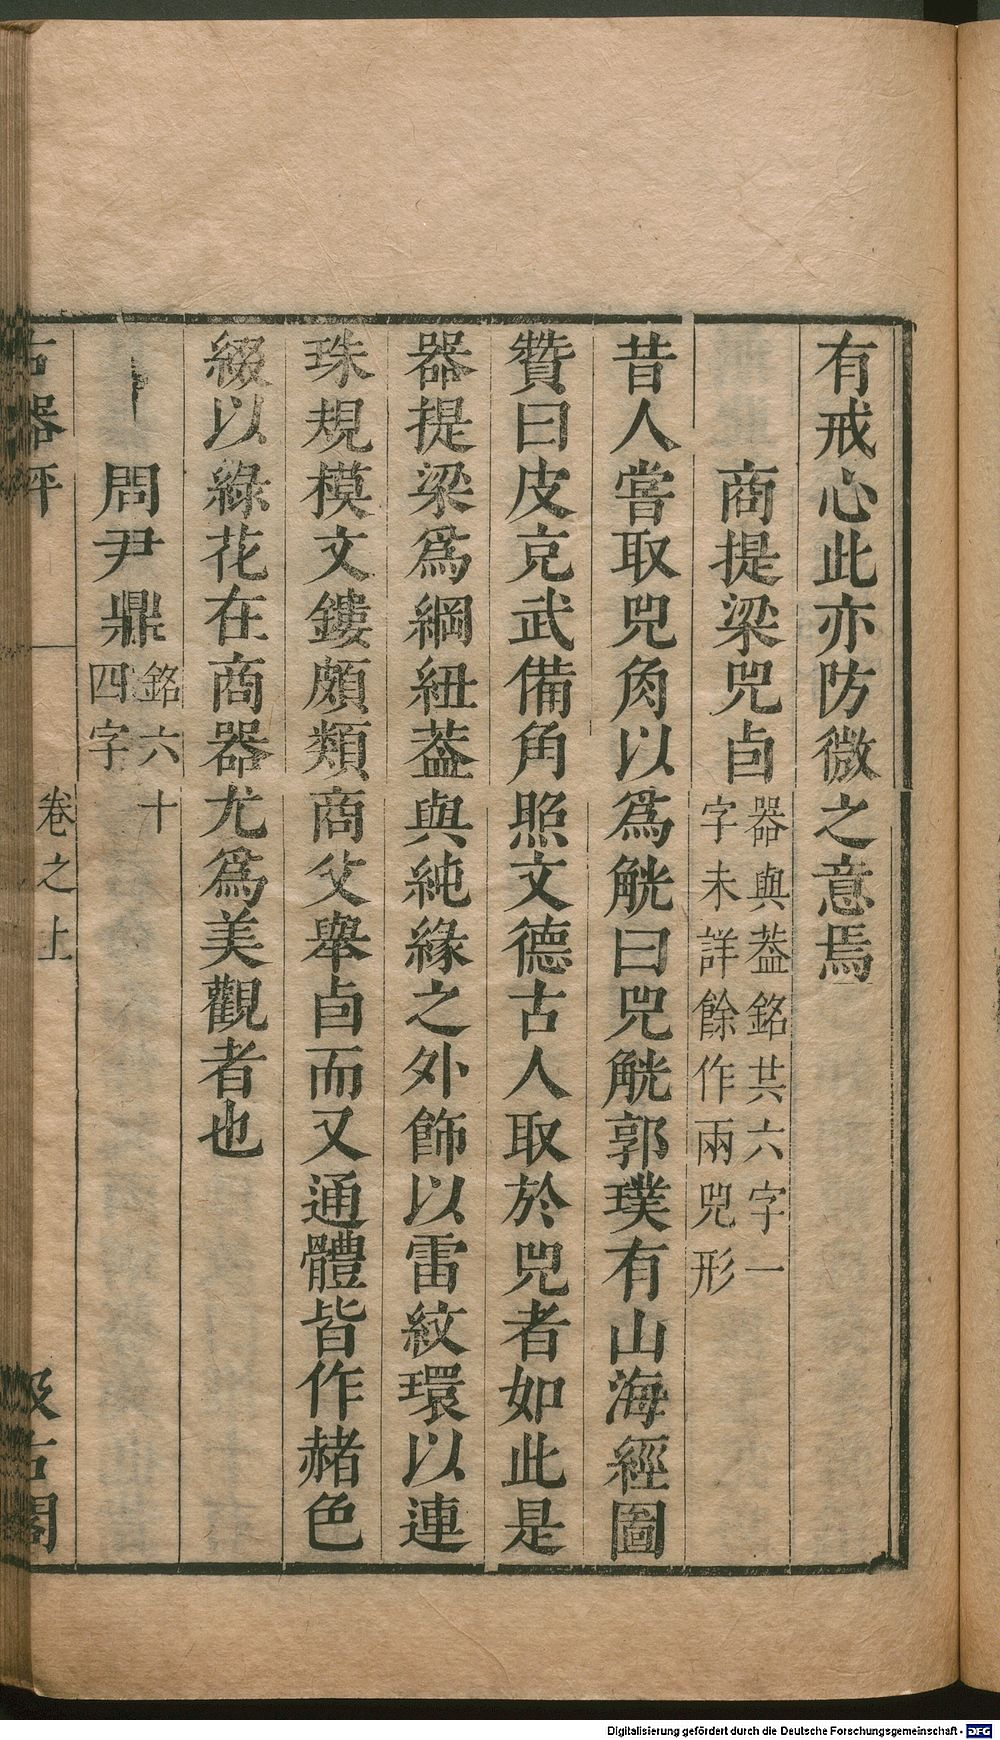 有戒心此亦防微之意焉
商提梁兕卣 器與葢銘共六字一字未詳餘作兩兕形
昔人嘗取兕角以爲觥曰兕觥郭璞有山海經圖
贊曰皮克武備角照文德古人取於兕者如此是
器提梁爲綱紐葢與純緣之外飾以雷紋環以連
珠規模文鏤頗類商父舉卣而又通體皆作赭色
綴以綠花在商器尤爲美觀者也
周尹鼎 銘六十四字
古器評 卷之上 汲古閣
Digitalisierung gefördert durch die Deutsche Forschungsgemeinschaft - DFG